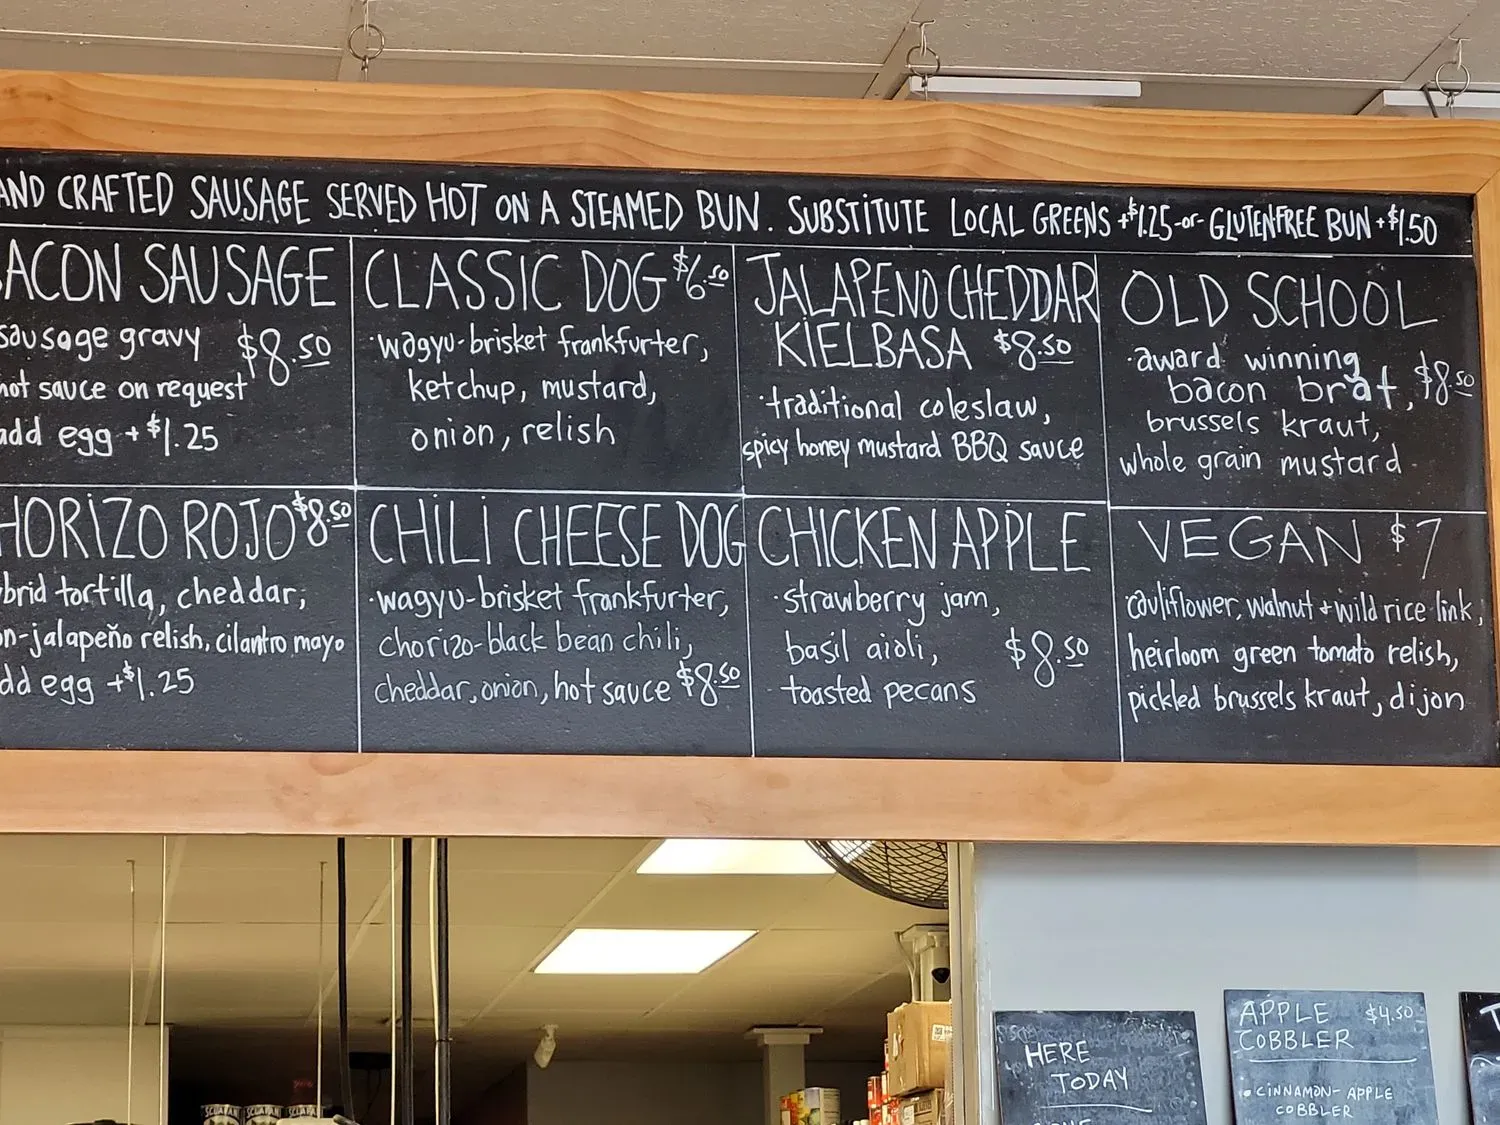 AND CRAFTED SAUSAGE SERVED HOT ON A STEAMED BUN. SUBSTITUTE LOCAL GREENS +$1.25 -or- GLUTENFREE BUN +$1.50
ACON SAUSAGE
sausage gravy $8.50
hot sauce on request
add egg +$1.25
CLASSIC DOG $6.50
·wagyu-brisket frankfurter,
ketchup, mustard,
onion, relish
JALAPENO CHEDDAR
KIELBASA $8.50
·traditional coleslaw,
spicy honey mustard BBQ sauce
OLD SCHOOL
·award winning
bacon brat, $8.50
brussels kraut,
whole grain mustard
HORIZO ROJO $8.50
brid tortilla, cheddar,
n-jalapeño relish, cilantro mayo
dd egg +$1.25
CHILI CHEESE DOG
·wagyu-brisket frankfurter,
chorizo-black bean chili,
cheddar, onion, hot sauce $8.50
CHICKEN APPLE
·strawberry jam,
basil aioli, $8.50
toasted pecans
VEGAN $7
·cauliflower, walnut + wild rice link,
heirloom green tomato relish,
pickled brussels kraut, dijon
HERE
TODAY
APPLE $4.50
COBBLER
• CINNAMON-APPLE
COBBLER
SCLAFANI SCLAFANI SCLAFANI